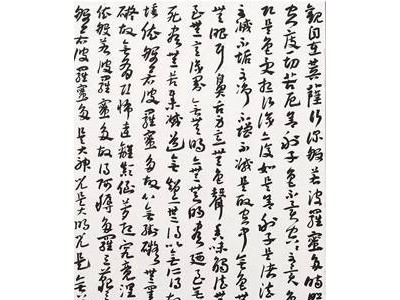 觀自在菩薩行深般若波羅蜜多時照
空度一切苦厄舍利子色不異空空不異
即是色受想行識亦復如是舍利子是諸法
不滅不垢不淨不增不減是故空中無色
無眼耳鼻舌身意無色聲香味觸法無
無意識界無無明亦無無明盡乃至無
死盡無苦集滅道無智亦無得以無所得故
埵依般若波羅蜜多故心無罣礙無罣
礙故無有恐怖遠離顛倒夢想究竟涅
依般若波羅蜜多故得阿耨多羅三藐三
般若波羅蜜多是大神咒是大明咒是無上